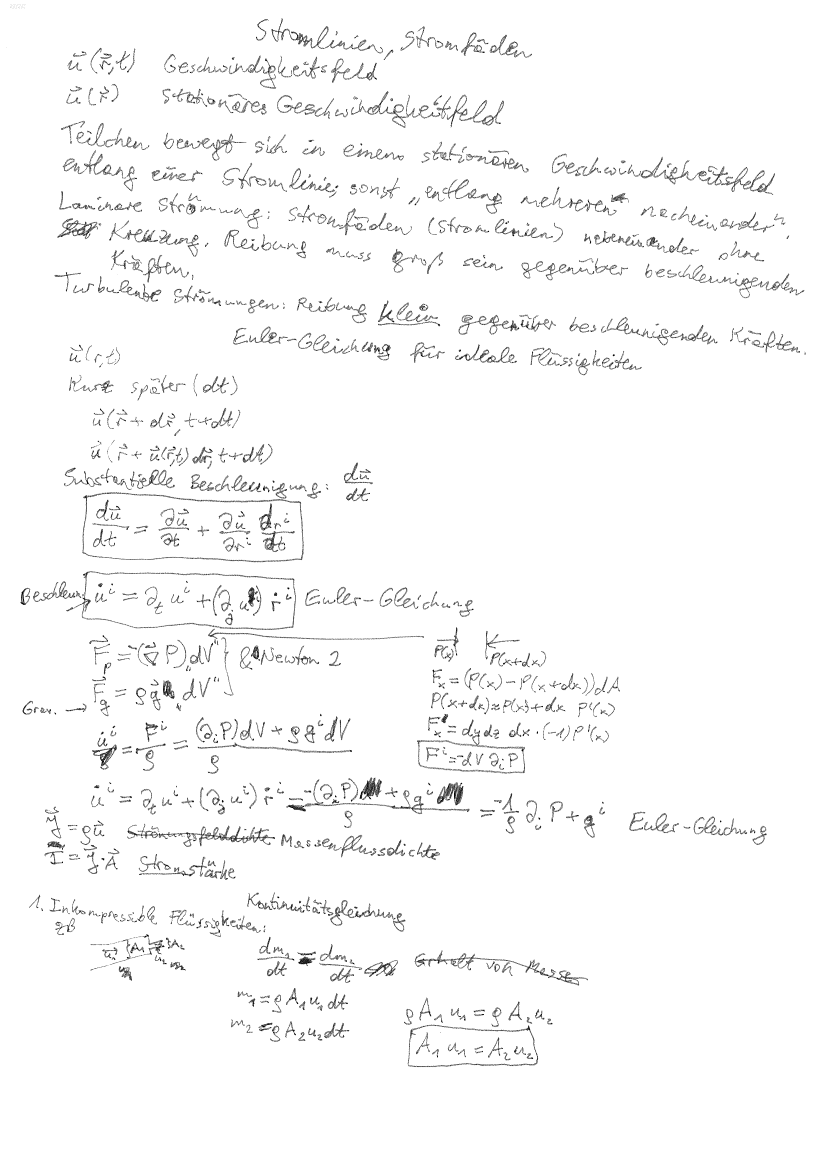 Stromlinien, Stromfäden
u⃗(r⃗,t) Geschwindigkeitsfeld
u⃗(r⃗) stationäres Geschwindigkeitfeld
Teilchen bewegt sich in einem stationären Geschwindigkeitsfeld
entlang einer Stromlinie; sonst „entlang mehreren nacheinander“.
Laminare Strömung: Stromfäden (Stromlinien) nebeneinander ohne
Kreuzung. Reibung muss groß sein gegenüber beschleunigenden
Kräften.
Turbulente Strömungen: Reibung klein gegenüber beschleunigenden Kräften.
Euler-Gleichung für ideale Flüssigkeiten
u⃗(r,t)
Kurz später (dt)
u⃗(r⃗+dr⃗, t+dt)
u⃗(r⃗+u⃗(r⃗,t)dr⃗, t+dt)
Substantielle Beschleunigung: du⃗/dt
du⃗/dt = ∂u⃗/∂t + ∂u⃗/∂rⁱ drⁱ/dt
Beschleun. u̇ⁱ = ∂ₜuⁱ + (∂ⱼuⁱ) ṙⁱ Euler-Gleichung
F⃗ₚ = -(∇⃗P)„dV“ & Newton 2
F⃗g = ρg⃗ „dV“
Grav.
P(x) P(x+dx)
Fₓ = (P(x) - P(x+dx))dA
P(x+dx) ≈ P(x) + dx P'(x)
Fₓ = dydz dx·(-1)P'(x)
Fⁱ = -dV ∂ᵢP
u̇ⁱ = Fⁱ/ρ = (∂ᵢP)dV + ρgⁱdV / ρ
u̇ⁱ = ∂ₜuⁱ + (∂ⱼuⁱ) ṙⁱ = -(∂ᵢP) + ρgⁱ / ρ = -1/ρ ∂ᵢP + gⁱ Euler-Gleichung
j⃗ = ρu⃗ Strömungsfelddichte Massenflussdichte
I = j⃗·A⃗ Stromstärke
Kontinuitätsgleichung
1. Inkompressible Flüssigkeiten:
zB
u₁ A₁ A₂ u₂ m₂
dm₁/dt = dm₂/dt Erhalt von Masse
m₁ = ρA₁u₁dt
m₂ = ρA₂u₂dt
ρA₁u₁ = ρA₂u₂
A₁u₁ = A₂u₂